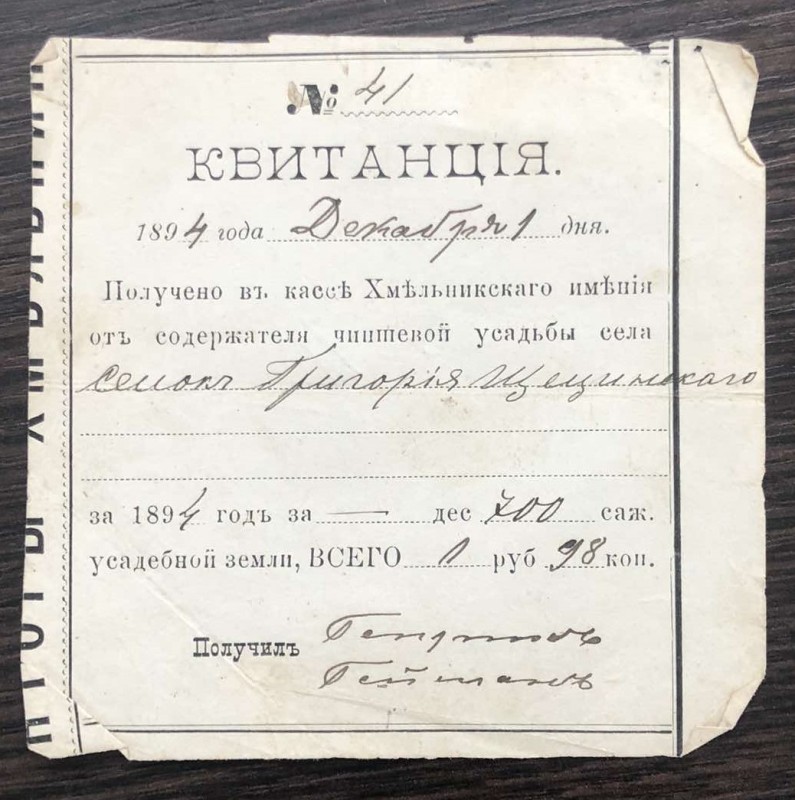 № 41
КВИТАНЦІЯ.
1894 года Декабря 1 дня.
Получено въ кассѣ Хмѣльникскаго имѣнія
отъ содержателя чиншевой усадьбы села
Семокъ Григорія Щещинскаго
за 1894 годъ за — дес 700 саж.
усадебной земли, ВСЕГО 1 руб 98 коп.
Получилъ